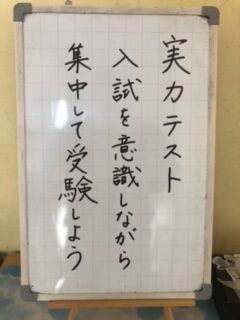 実力テスト
入試を意識しながら
集中して受験しよう